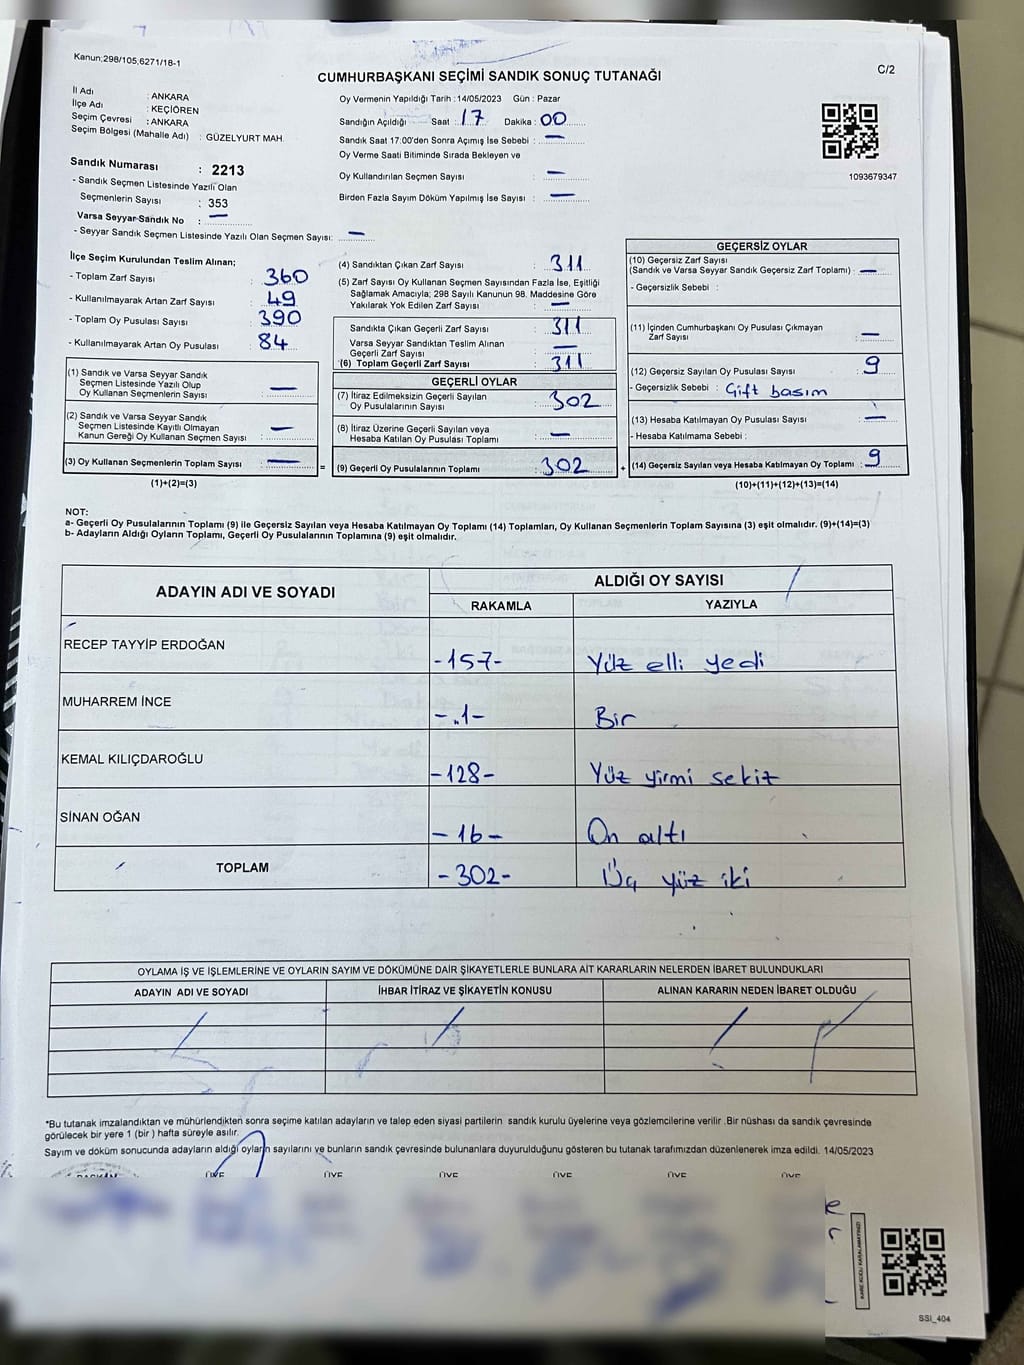 Kanun;298/105,6271/18-1
C/2
CUMHURBAŞKANI SEÇİMİ SANDIK SONUÇ TUTANAĞI
İl Adı : ANKARA
İlçe Adı : KEÇİÖREN
Seçim Çevresi : ANKARA
Seçim Bölgesi (Mahalle Adı) : GÜZELYURT MAH.
Sandık Numarası : 2213
- Sandık Seçmen Listesinde Yazılı Olan
Seçmenlerin Sayısı : 353
Varsa Seyyar Sandık No : —
- Seyyar Sandık Seçmen Listesinde Yazılı Olan Seçmen Sayısı: —
Oy Vermenin Yapıldığı Tarih :14/05/2023 Gün : Pazar
Sandığın Açıldığı Saat : 17 Dakika : 00
Sandık Saat 17:00'den Sonra Açımış İse Sebebi : —
Oy Verme Saati Bitiminde Sırada Bekleyen ve
Oy Kullandırılan Seçmen Sayısı : —
Birden Fazla Sayım Döküm Yapılmış İse Sayısı : —
1093679347
İlçe Seçim Kurulundan Teslim Alınan;
- Toplam Zarf Sayısı : 360
- Kullanılmayarak Artan Zarf Sayısı : 49
- Toplam Oy Pusulası Sayısı : 390
- Kullanılmayarak Artan Oy Pusulası : 84
(1) Sandık ve Varsa Seyyar Sandık
Seçmen Listesinde Yazılı Olup
Oy Kullanan Seçmenlerin Sayısı : —
(2) Sandık ve Varsa Seyyar Sandık
Seçmen Listesinde Kayıtlı Olmayan
Kanun Gereği Oy Kullanan Seçmen Sayısı : —
(3) Oy Kullanan Seçmenlerin Toplam Sayısı : —
(1)+(2)=(3)
(4) Sandıktan Çıkan Zarf Sayısı : 311
(5) Zarf Sayısı Oy Kullanan Seçmen Sayısından Fazla İse, Eşitliği
Sağlamak Amacıyla; 298 Sayılı Kanunun 98. Maddesine Göre
Yakılarak Yok Edilen Zarf Sayısı : —
Sandıkta Çıkan Geçerli Zarf Sayısı : 311
Varsa Seyyar Sandıktan Teslim Alınan
Geçerli Zarf Sayısı : —
(6) Toplam Geçerli Zarf Sayısı : 311
GEÇERLİ OYLAR
(7) İtiraz Edilmeksizin Geçerli Sayılan
Oy Pusulalarının Sayısı : 302
(8) İtiraz Üzerine Geçerli Sayılan veya
Hesaba Katılan Oy Pusulası Toplamı : —
= (9) Geçerli Oy Pusulalarının Toplamı : 302
GEÇERSİZ OYLAR
(10) Geçersiz Zarf Sayısı
(Sandık ve Varsa Seyyar Sandık Geçersiz Zarf Toplamı) : —
- Geçersizlik Sebebi :
(11) İçinden Cumhurbaşkanı Oy Pusulası Çıkmayan
Zarf Sayısı : —
(12) Geçersiz Sayılan Oy Pusulası Sayısı : 9
- Geçersizlik Sebebi : Çift basım
(13) Hesaba Katılmayan Oy Pusulası Sayısı : —
- Hesaba Katılmama Sebebi :
+ (14) Geçersiz Sayılan veya Hesaba Katılmayan Oy Toplamı : 9
(10)+(11)+(12)+(13)=(14)
NOT:
a- Geçerli Oy Pusulalarının Toplamı (9) ile Geçersiz Sayılan veya Hesaba Katılmayan Oy Toplamı (14) Toplamları, Oy Kullanan Seçmenlerin Toplam Sayısına (3) eşit olmalıdır. (9)+(14)=(3)
b- Adayların Aldığı Oyların Toplamı, Geçerli Oy Pusulalarının Toplamına (9) eşit olmalıdır.
ADAYIN ADI VE SOYADI
ALDIĞI OY SAYISI
RAKAMLA YAZIYLA
RECEP TAYYİP ERDOĞAN -157- Yüz elli yedi
MUHARREM İNCE -.1- Bir
KEMAL KILIÇDAROĞLU -128- Yüz yirmi sekiz
SİNAN OĞAN -16- On altı
TOPLAM -302- Üç yüz iki
OYLAMA İŞ VE İŞLEMLERİNE VE OYLARIN SAYIM VE DÖKÜMÜNE DAİR ŞİKAYETLERLE BUNLARA AİT KARARLARIN NELERDEN İBARET BULUNDUKLARI
ADAYIN ADI VE SOYADI İHBAR İTİRAZ VE ŞİKAYETİN KONUSU ALINAN KARARIN NEDEN İBARET OLDUĞU
*Bu tutanak imzalandıktan ve mühürlendikten sonra seçime katılan adayların ve talep eden siyasi partilerin sandık kurulu üyelerine veya gözlemcilerine verilir .Bir nüshası da sandık çevresinde
görülecek bir yere 1 (bir ) hafta süreyle asılır.
Sayım ve döküm sonucunda adayların aldığı oyların sayılarını ve bunların sandık çevresinde bulunanlara duyurulduğunu gösteren bu tutanak tarafımızdan düzenlenerek imza edildi. 14/05/2023
BAŞKAN ÜYE ÜYE ÜYE ÜYE ÜYE ÜYE
KARE KODU KARALAMAYINIZ!
SSİ_404